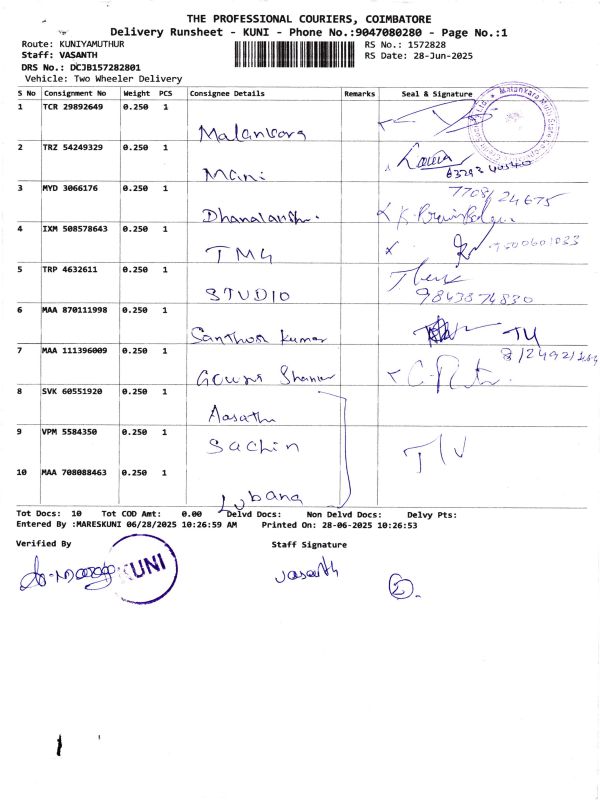 THE PROFESSIONAL COURIERS, COIMBATORE
Delivery Runsheet - KUNI - Phone No.:9047080280 - Page No.:1
Route: KUNIYAMUTHUR RS No.: 1572828
Staff: VASANTH RS Date: 28-Jun-2025
DRS No.: DCJB157282801
Vehicle: Two Wheeler Delivery
S No Consignment No Weight PCS Consignee Details Remarks Seal & Signature
1 TCR 29892649 0.250 1 Malankara
2 TRZ 54249329 0.250 1 Mani
3 MYD 3066176 0.250 1 7708124675
4 IXM 508578643 0.250 1 TMG
5 TRP 4632611 0.250 1 STUDIO 9843874830
6 MAA 870111998 0.250 1 Santhosh Kumar
7 MAA 111396009 0.250 1 Gowri Shankar
8 SVK 60551920 0.250 1
9 VPM 5584350 0.250 1 Sachin
10 MAA 708088463 0.250 1 Lubana
Tot Docs: 10 Tot COD Amt: 0.00 Delvd Docs: Non Delvd Docs: Delvy Pts:
Entered By :MARESKUNI 06/28/2025 10:26:59 AM Printed On: 28-06-2025 10:26:53
Verified By Staff Signature
KUNI vasanth